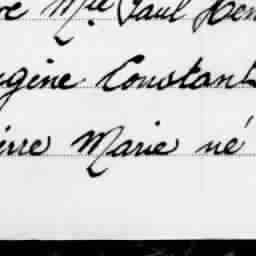 re Mlle Paul Hen
gène Constant
ierre Marie né